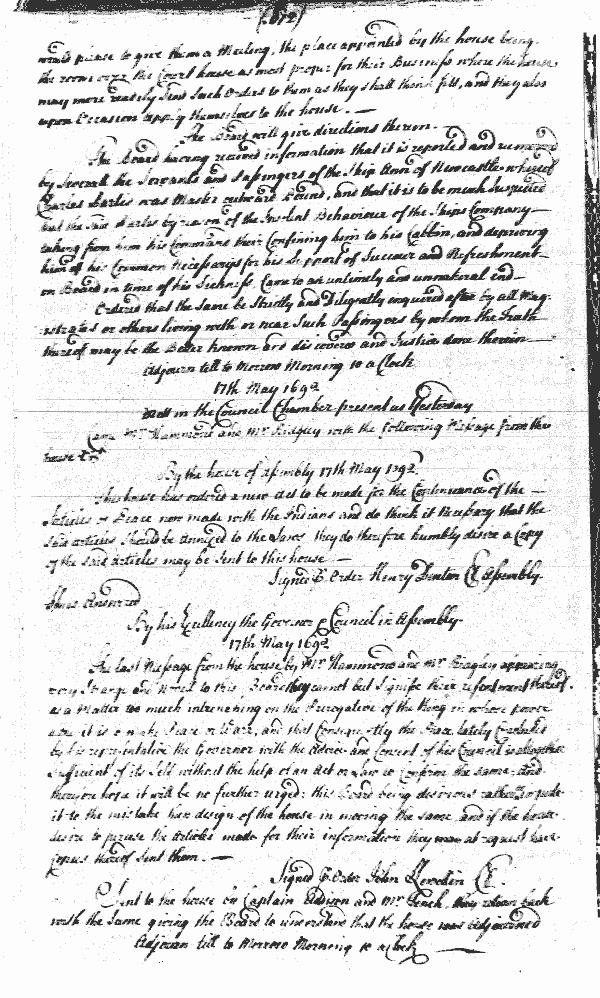 (672)
would please to give them a Meeting, the place appointed by the house being
the room over the Court house as most proper for their Business where the house
may more readily send such Orders to them as they shall think fitt, and they also
upon Occasion apply themselves to the house. —
The Board will give directions therein.
The Board having received information that it is reported and rumored
by Severall the Servants and Passengers of the Ship Ann of Newcastle whereof
Charles Partis was Master outward bound, and that it is to be much Suspected
that the said Partis by reason of the Insolent Behaviour of the Ships Company
taking from him his Command their Confining him to his Cabbin, and depriving
him of his Common Necessarys for his Support of Succour and Refreshment
on Board in time of his Sickness, Came to an untimely and unnatural end —
Ordered that the same be Strictly and Diligently enquired after by all Mag-
istrates or others living with or near Such Passingers by whom the Truth
thereof may be the Better known and discovered and Justice done therein —
Adjourn till to Morrow Morning 10 a Clock
17th May 1692
Mett in the Council Chamber present as Yesterday
Came Mr Hammond and Mr Ridgley with the following Message from the
house &c
By the house of Assembly 17th May 1692.
This house has ordered a new Act to be made for the Continuance of the —
Articles of Peace now made with the Indians and do think it Necessary that the
said articles should be annexed to the Laws they do therefore humbly desire a Copy
of the said articles may be Sent to this house —
Signed P Order Henry Denton Cl Assembly.
Thus Answered
By his Excellency the Governor & Council in Assembly
17th May 1692
The last Message from the house by Mr Hammond and Mr Ridgley appearing
very Strange and Novel to this Board they cannot but signifie their resentment thereof.
as a Matter too much intrenching on the Prerogative of the King in whose power
alone it is to make Peace or Warr, and that Consequently the Peace lately Concluded
by his representative the Governor with the Advice and Consent of his Council is altogether
Sufficient of its Self without the help of an Act or Law to Confirm the same, and
thereupon hope it will be no further urged: this Board being desirous rather to impute
it to the mistake than design of the house in moving the same, and if the house
desire to peruse the Articles made for their information they may at request have
Copies thereof Sent them. —
Signed P Order John Llewellin Cl.
Sent to the house by Captain Addison and Mr Tench, they return back
with the same giving the Board to understand that the house was adjourned
Adjourn till to Morrow Morning 10 a Clock —